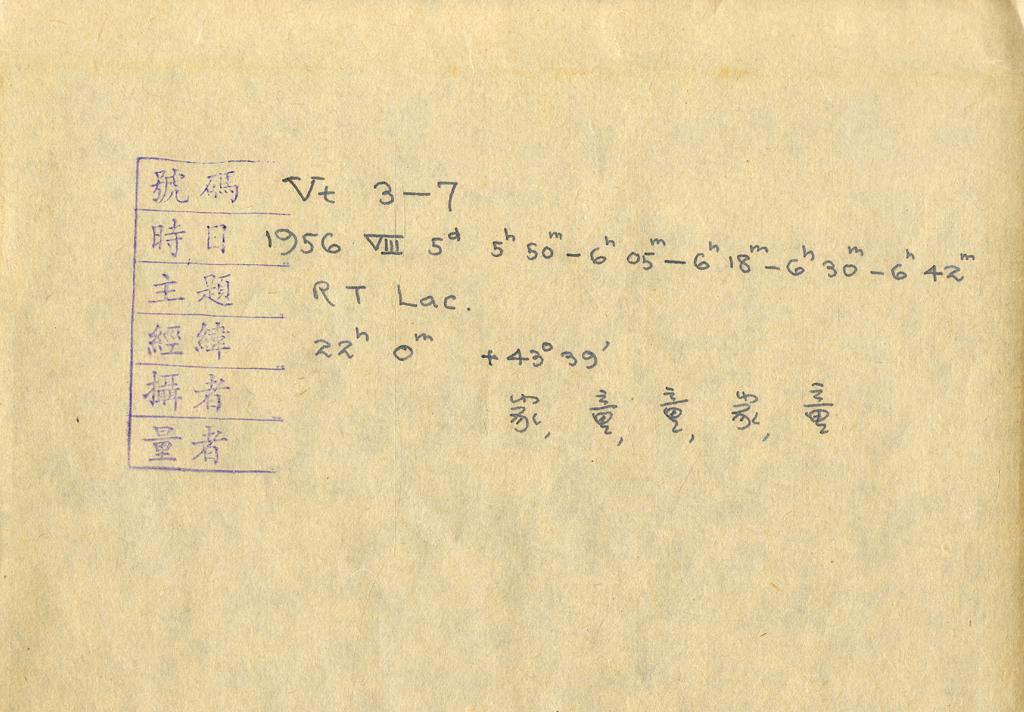 號碼 Vt 3-7
時日 1956 VIII 5ᵈ 5ʰ 50ᵐ - 6ʰ 05ᵐ - 6ʰ 18ᵐ - 6ʰ 30ᵐ - 6ʰ 42ᵐ
主題 RT Lac.
經緯 22ʰ 0ᵐ +43° 39′
攝者
量者